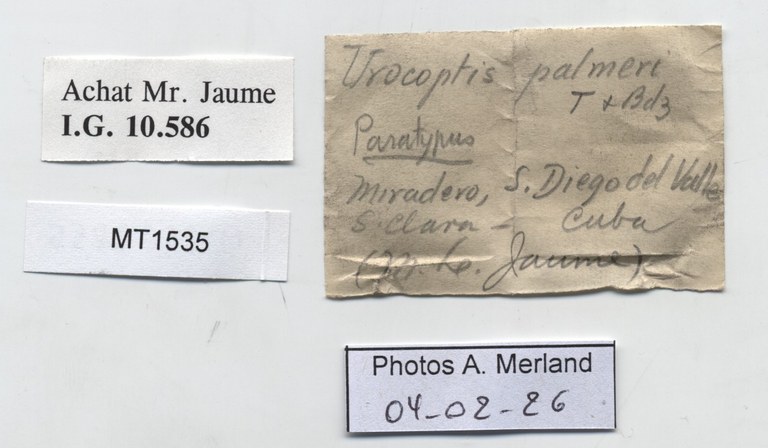 Achat Mr. Jaume
I.G. 10.586
MT1535
Urocoptis palmeri
T & Bdz
Paratypus
Miradero, S. Diego del Valle
S. Clara - Cuba
(M. L. Jaume)
Photos A. Merland
04-02-26